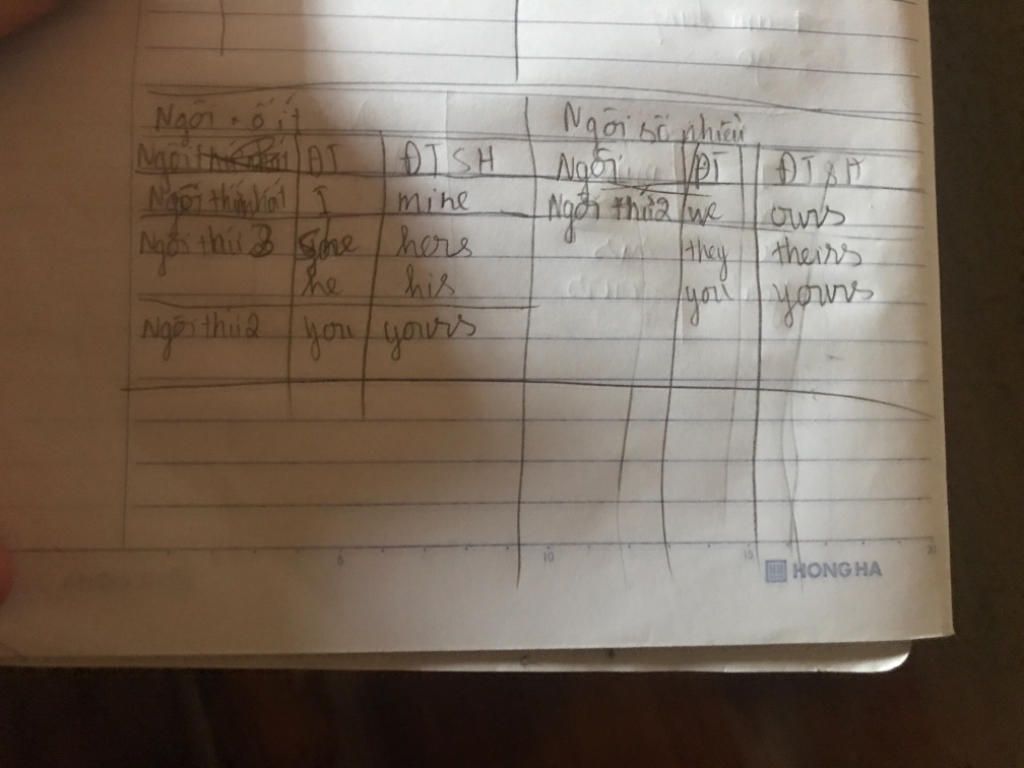 Ngôi số ít Ngôi số nhiều
Ngôi ĐT ĐTSH Ngôi ĐT ĐTSH
Ngôi thứ nhất I mine Ngôi thứ 2 we ours
Ngôi thứ 3 She hers they theirs
he his you yours
Ngôi thứ 2 you yours
5 10 15 20
HONG HA